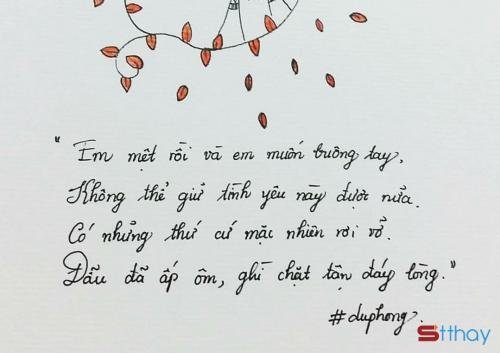 "Em mệt rồi và em muốn buông tay,
Không thể giữ tình yêu này được nữa.
Có những thứ cứ mặc nhiên rơi vỡ.
Dẫu đã ấp ôm, ghì chặt tận đáy lòng."
#duphong.
Stthay